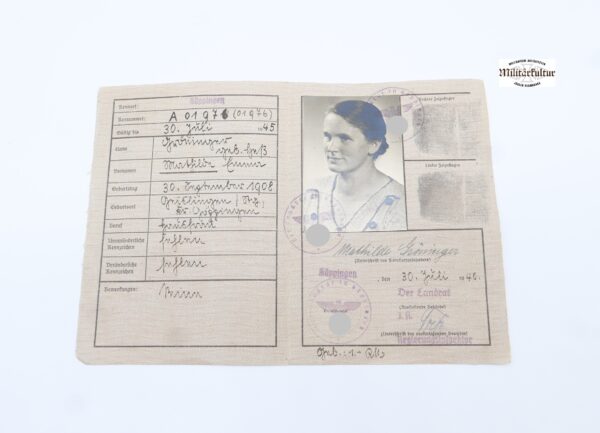 Militärkultur
Göppingen
Kennort:
Kennummer: A 01976 (01976)
Gültig bis 30. Juli 1945
Name Gröninger
geb.
Vornamen Mathilde Emma
Geburtstag 30. September 1908
Geburtsort Geislingen / Stg.
Kr. Göppingen
Beruf Hausfrau
Unveränderliche
Kennzeichen fehlen
Veränderliche
Kennzeichen fehlen
Bemerkungen: keine
Rechter Zeigefinger
Linker Zeigefinger
Mathilde Gröninger
(Unterschrift des Kennkarteninhabers)
Göppingen, den 30. Juli 1940.
Der Landrat
(Ausstellende Behörde)
(Unterschrift des ausfertigenden Beamten)
Regierungsinspektor
Geb.: 1.- RM